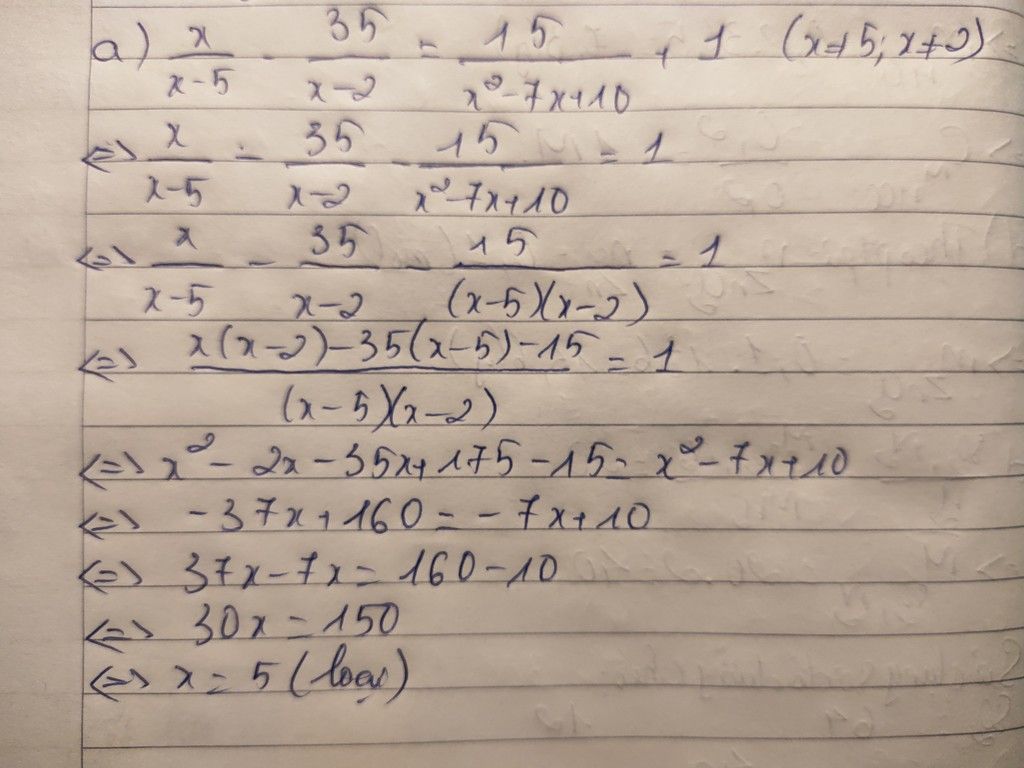 a) x/(x-5) - 35/(x-2) = 15/(x²-7x+10) + 1 (x≠5; x≠2)
<=> x/(x-5) - 35/(x-2) - 15/(x²-7x+10) = 1
<=> x/(x-5) - 35/(x-2) - 15/((x-5)(x-2)) = 1
<=> (x(x-2)-35(x-5)-15)/((x-5)(x-2)) = 1
<=> x² - 2x - 35x + 175 - 15 = x² - 7x + 10
<=> -37x + 160 = -7x + 10
<=> 37x - 7x = 160 - 10
<=> 30x = 150
<=> x = 5 (loại)